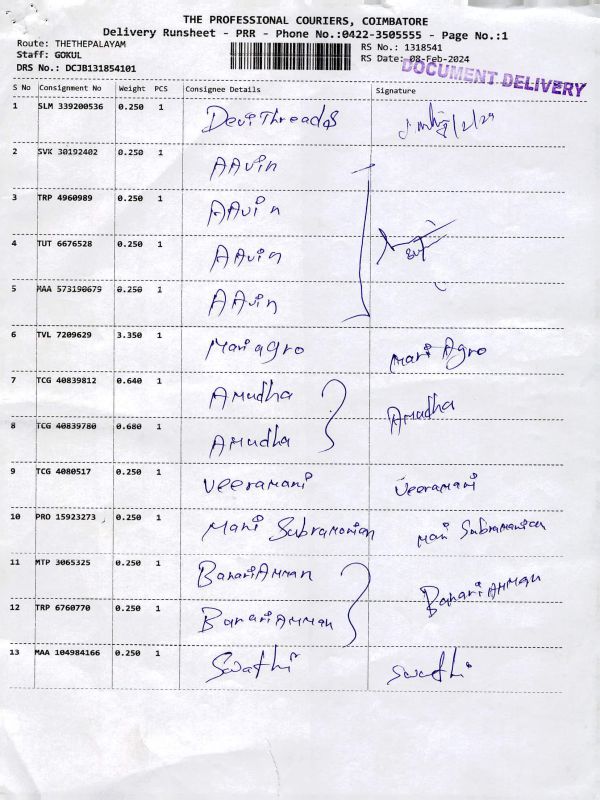 THE PROFESSIONAL COURIERS, COIMBATORE
Delivery Runsheet - PRR - Phone No.:0422-3505555 - Page No.:1
Route: THETHEPALAYAM RS No.: 1318541
Staff: GOKUL RS Date: 08-Feb-2024
DRS No.: DCJB131854101
DOCUMENT DELIVERY
S No Consignment No Weight PCS Consignee Details Signature
1 SLM 339200536 0.250 1 Devi Threads
2 SVK 30192402 0.250 1 AAvin
3 TRP 4960989 0.250 1 AAvin
4 TUT 6676528 0.250 1 AAvin
5 MAA 573190679 0.250 1 AAvin
6 TVL 7209629 3.350 1 Mari agro Mari Agro
7 TCG 40839812 0.640 1 Amudha Amudha
8 TCG 40839780 0.680 1 Amudha
9 TCG 4080517 0.250 1 Veeramani Veeramani
10 PRO 15923273 0.250 1 Mani Subramonian Mani Subramanian
11 MTP 3065325 0.250 1 BanariAmman BanariAmman
12 TRP 6760770 0.250 1 BanariAmman
13 MAA 104984166 0.250 1 Swathi Swathi